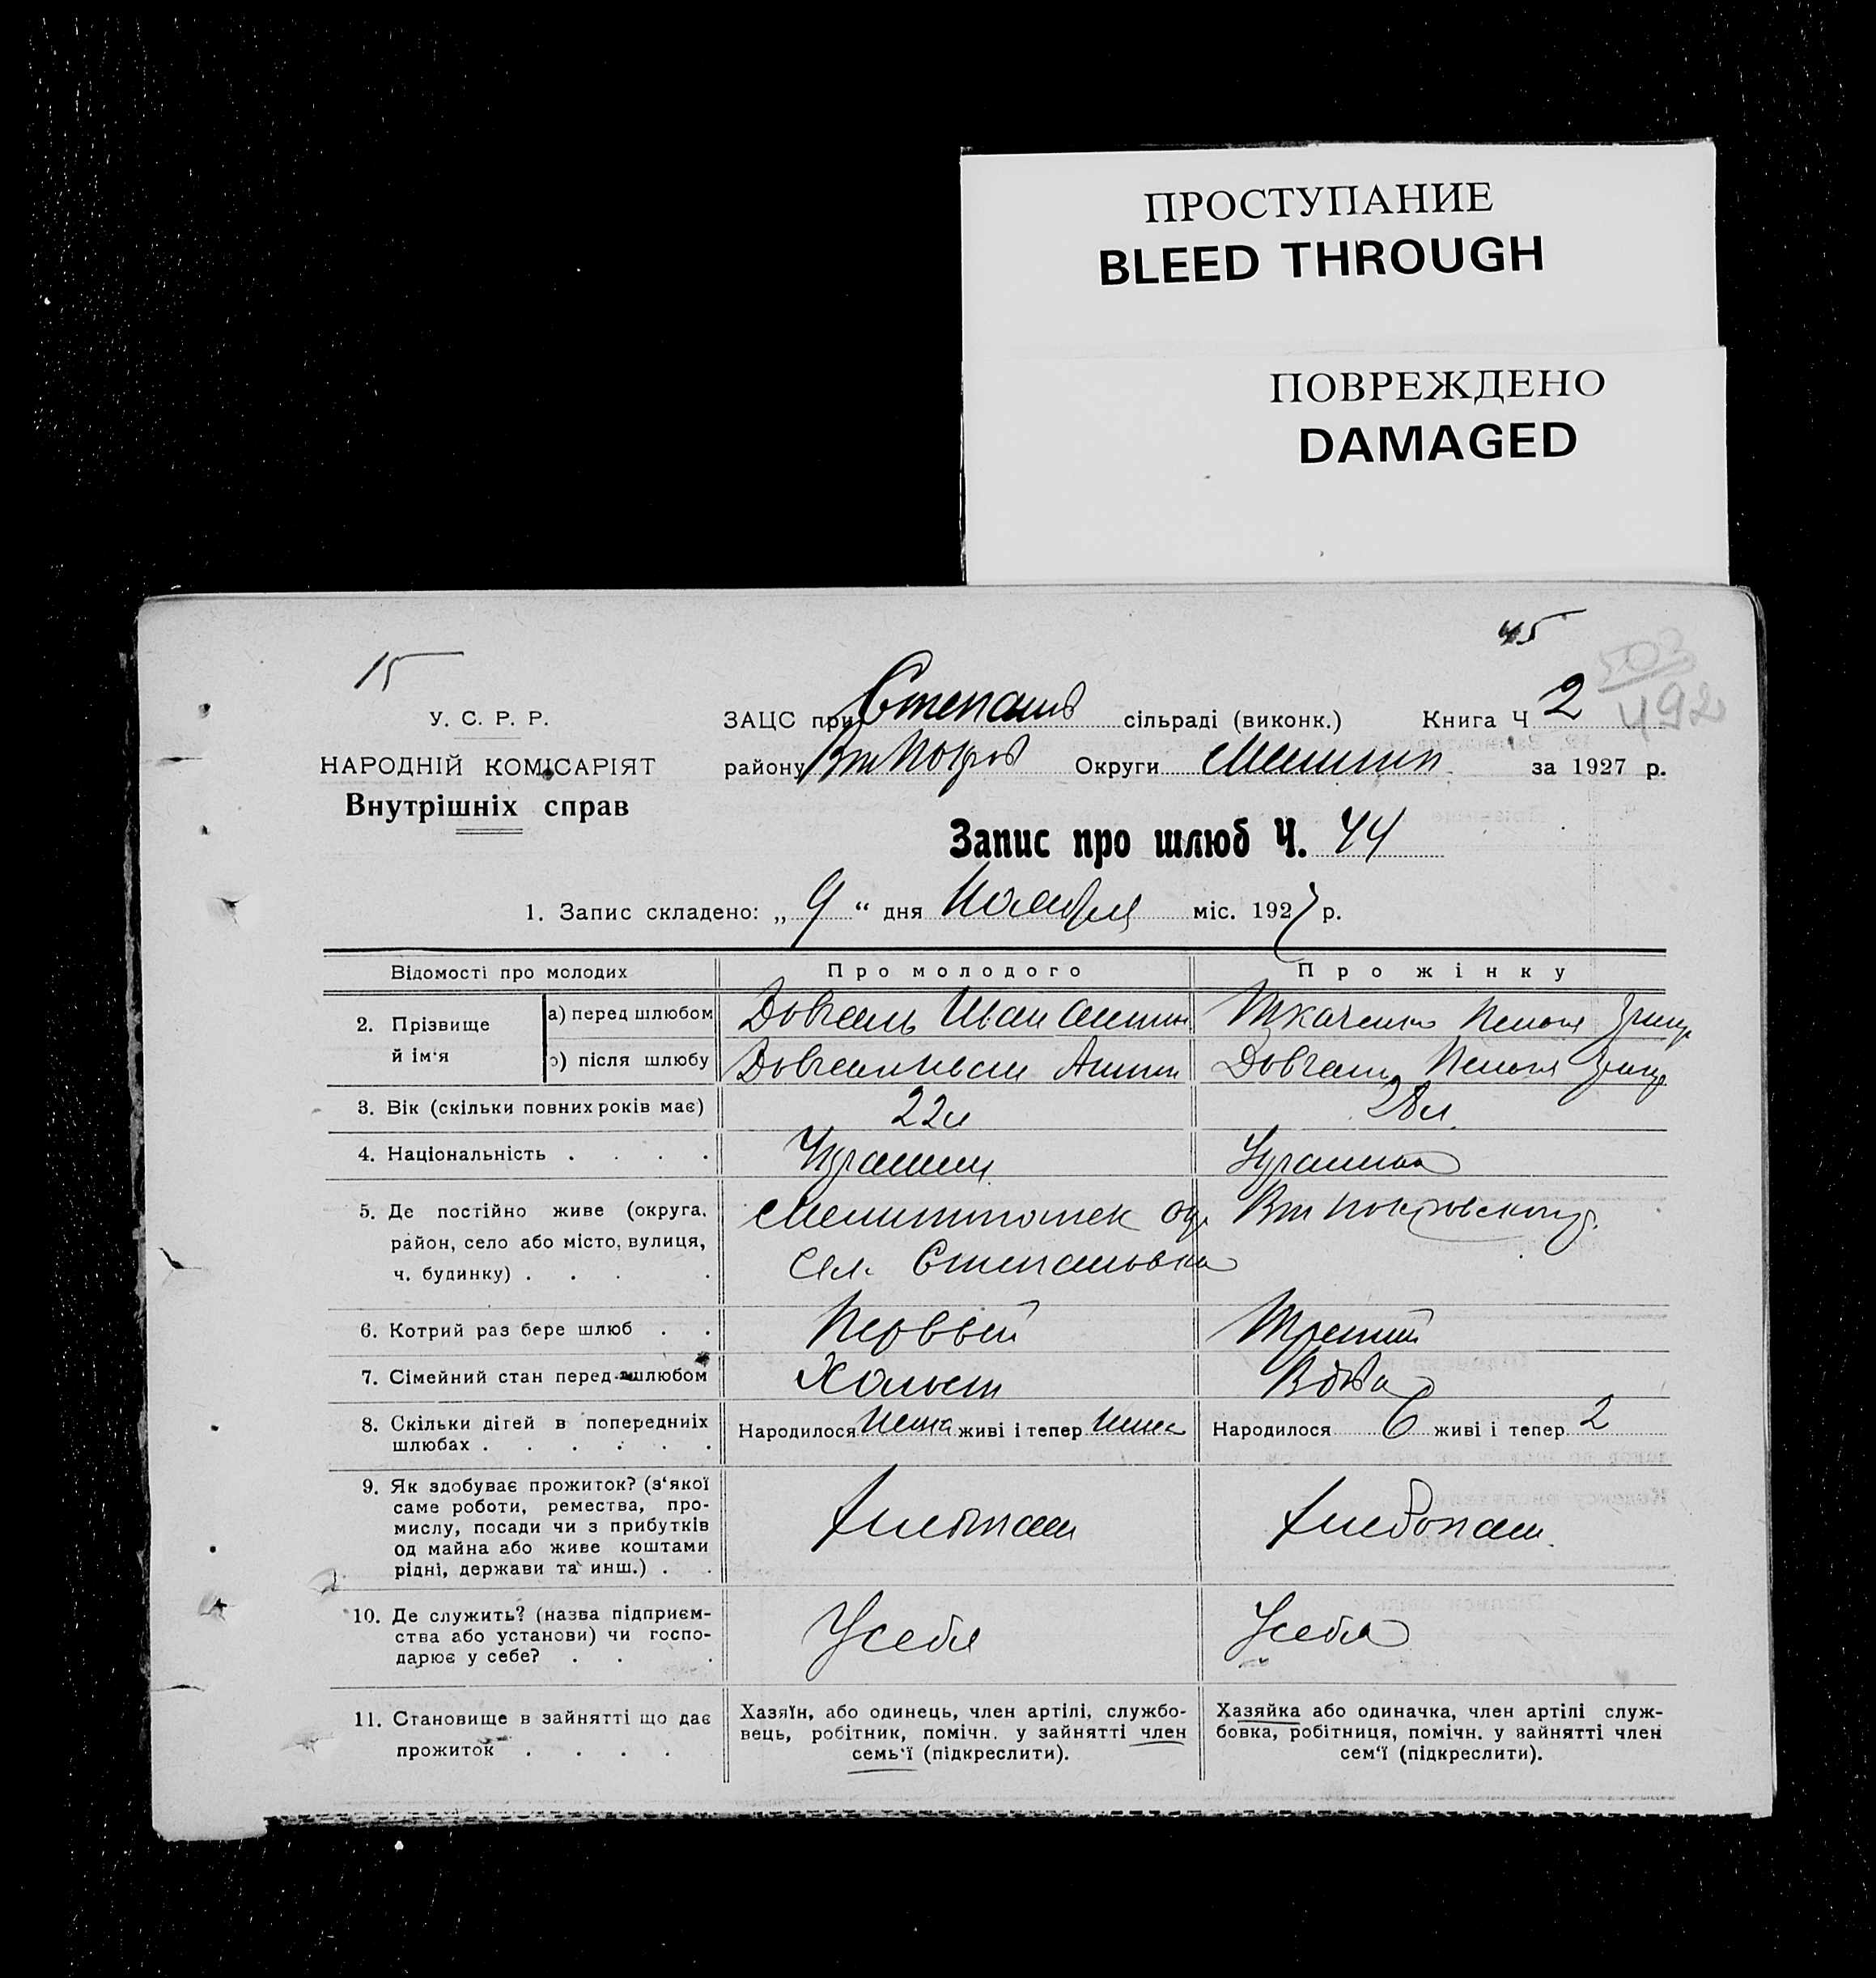 ПРОСТУПАНИЕ
BLEED THROUGH
ПОВРЕЖДЕНО
DAMAGED
45
15
503
492
У. С. Р. Р.
НАРОДНІЙ КОМІСАРІЯТ
Внутрішніх справ
ЗАЦС при Степанів сільраді (виконк.) Книга Ч 2
району Вт Покров Округи Мелитоп за 1927 р.
Запис про шлюб Ч. 44
1. Запис складено: „ 9 “ дня Ноября міс. 1927 р.
Відомості про молодих Про молодого Про жінку
2. Прізвище й ім'я
а) перед шлюбом Довгаль Иван Ткаченко
б) після шлюбу Довгаль Иван Довгаль
3. Вік (скільки повних років має) 22 л 28 л.
4. Національність . . . . Украинец Украинка
5. Де постійно живе (округа, район, село або місто, вулиця, ч. будинку) . . . .
Мелитопольск окр Вт Покровского р.
Сел. Степановка
6. Котрий раз бере шлюб . . Первый Третий
7. Сімейний стан перед шлюбом Холост Вдова
8. Скільки дітей в попередниіх шлюбах . . . . . .
Народилося Нема живі і тепер Нема Народилося 6 живі і тепер 2
9. Як здобуває прожиток? (з‘якої
саме роботи, ремества, про-
мислу, посади чи з прибутків
од майна або живе коштами
рідні, держави та инш.) . .
Хлебопаш Хлебопаш.
10. Де служить? (назва підприєм-
ства або установи) чи госпо-
дарює у себе? . . .
У себя У себя
11. Становище в зайнятті що дає
прожиток . . . .
Хазяїн, або одинець, член артілі, службо-
вець, робітник, помічн. у зайнятті член
семь‘ї (підкреслити).
Хазяйка або одиначка, член артілі служ-
бовка, робітниця, помічн. у зайнятті член
сем‘ї (підкреслити).